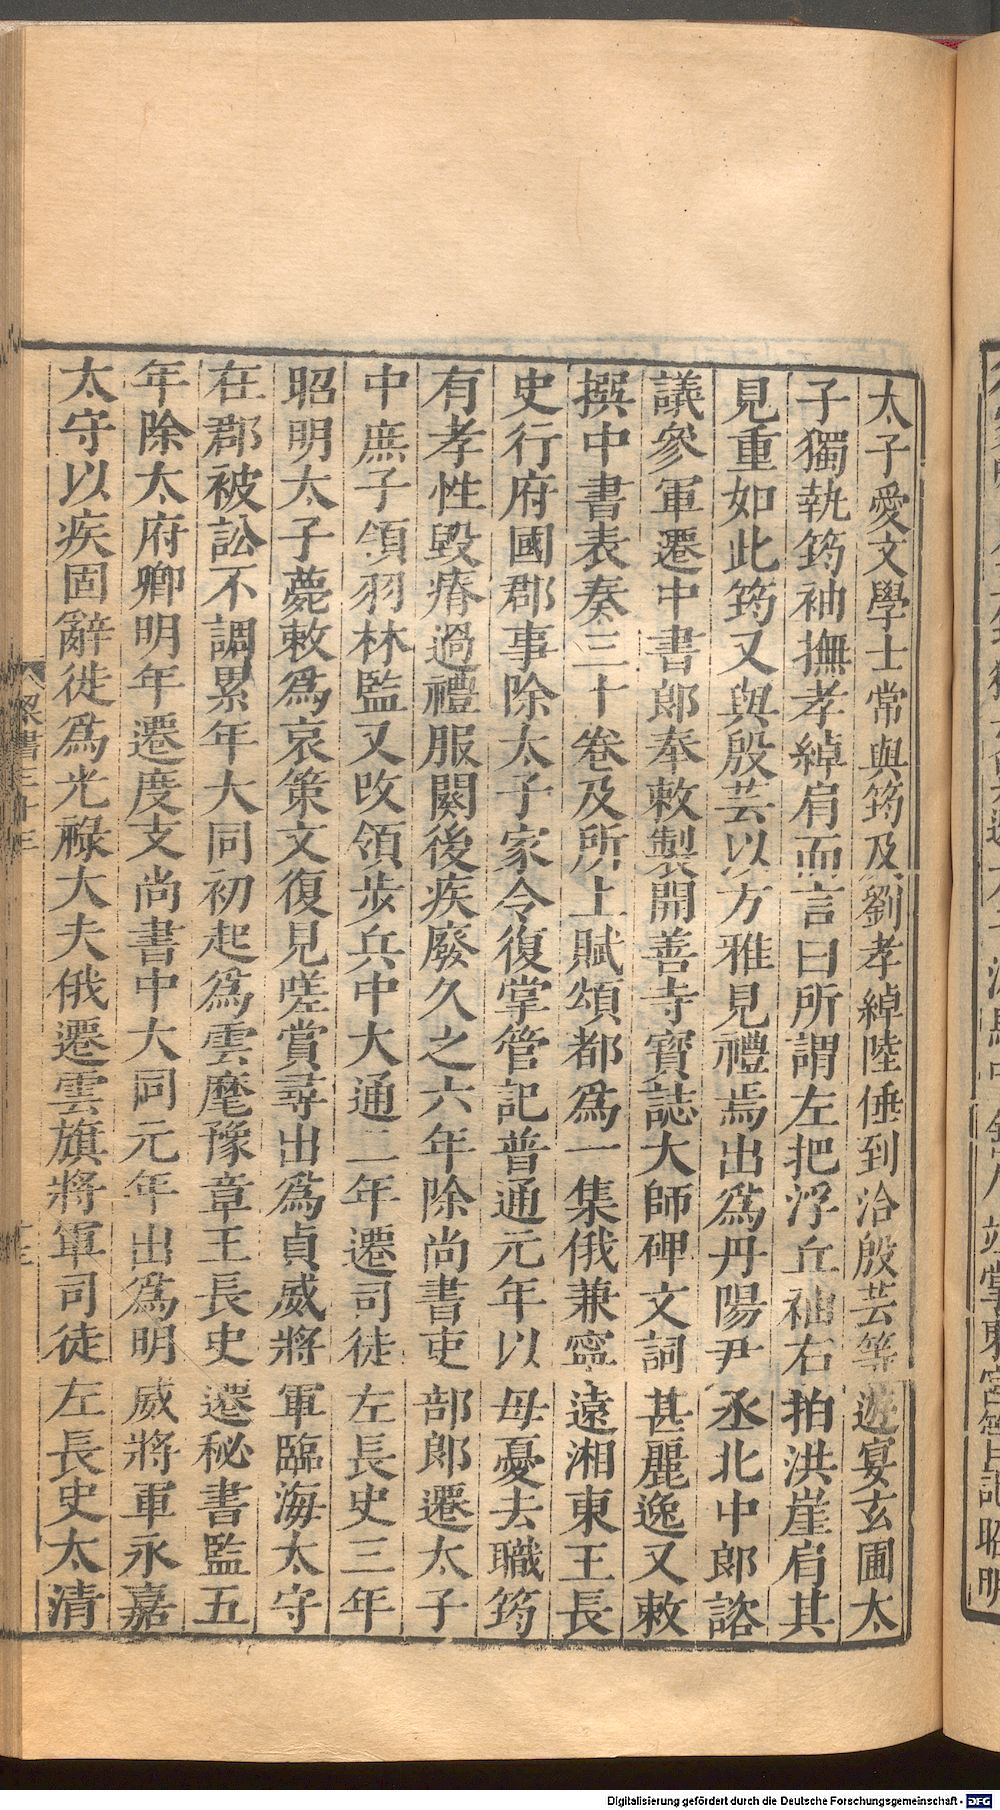 太子愛文學士常與筠及劉孝綽陸倕到洽殷芸等遊宴玄圃太
子獨執筠袖撫孝綽肩而言曰所謂左把浮丘袖右拍洪崖肩其
見重如此筠又與殷芸以方雅見禮焉出爲丹陽尹丞北中郎諮
議參軍遷中書郎奉敕製開善寺寶誌大師碑文詞甚麗逸又敕
撰中書表奏三十卷及所上賦頌都爲一集俄兼寧遠湘東王長
史行府國郡事除太子家令復掌管記普通元年以母憂去職筠
有孝性毀瘠過禮服闋後疾廢久之六年除尚書吏部郎遷太子
中庶子領羽林監又改領步兵中大通二年遷司徒左長史三年
昭明太子薨敕爲哀策文復見嗟賞尋出爲貞威將軍臨海太守
在郡被訟不調累年大同初起爲雲麾豫章王長史遷秘書監五
年除太府卿明年遷度支尚書中大同元年出爲明威將軍永嘉
太守以疾固辭徙爲光祿大夫俄遷雲旗將軍司徒左長史太清
梁書三十三
Digitalisierung gefördert durch die Deutsche Forschungsgemeinschaft - DFG